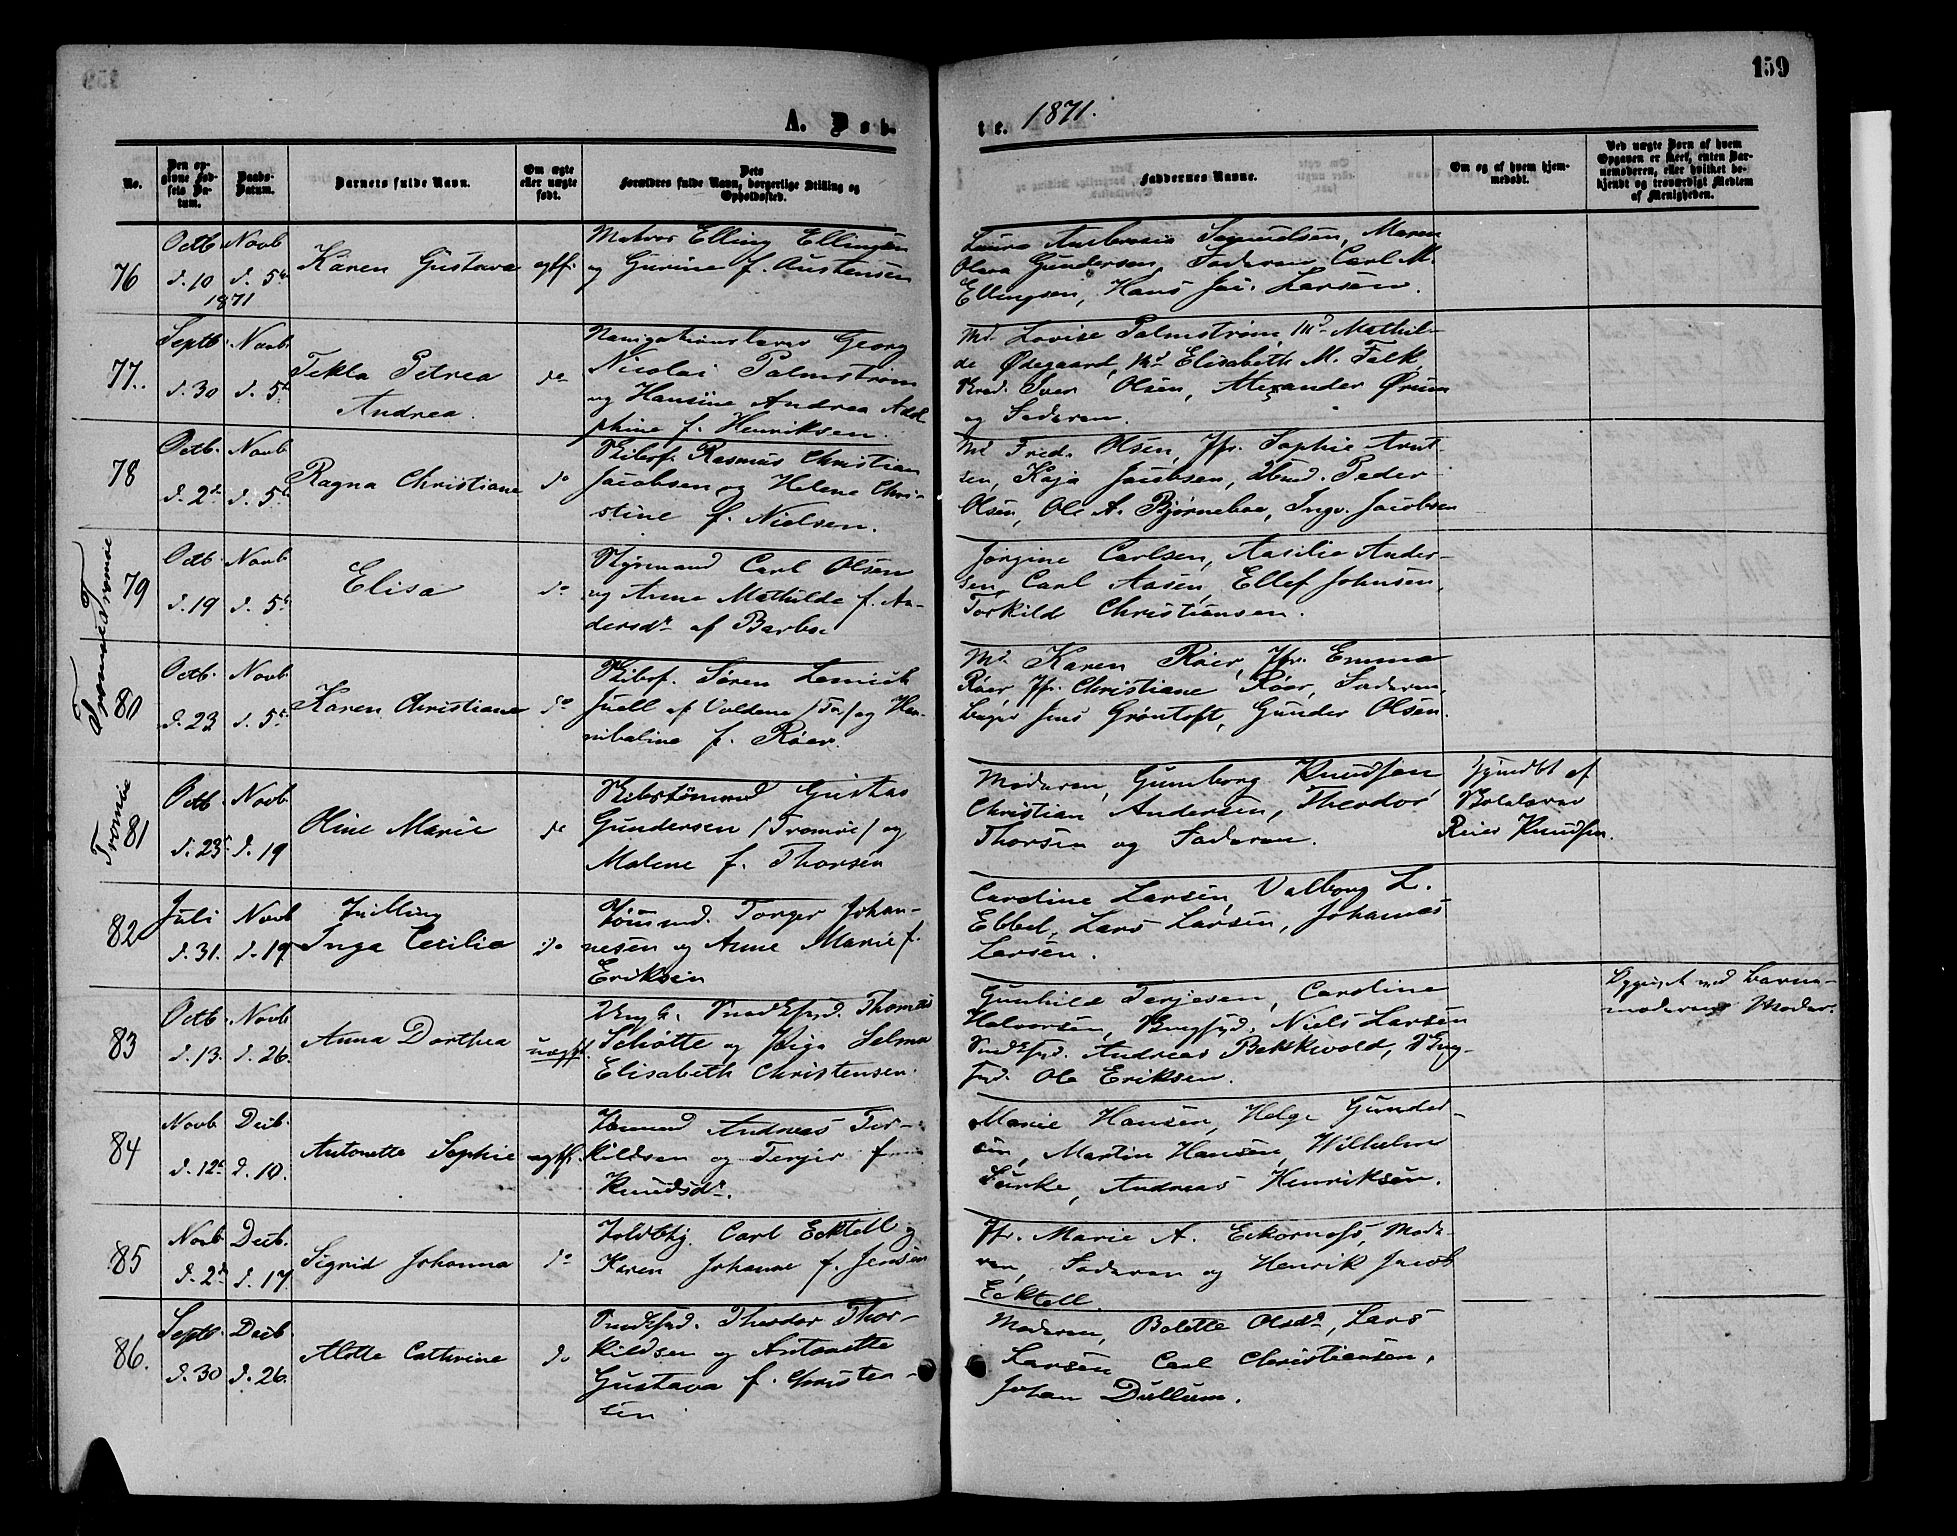 159
A. Døb-
te. 1871.
No.
Den op-
givne Fød-
sels Da-
tum.
Daabs-
Datum.
Barnets fulde Navn.
Om ægte
eller uægte
født.
Dets
Forældres fulde Navn, borgerlige Stilling og
Opholdssted.
Faddernes Navne.
Om og af hvem hjem-
medøbt.
Ved uægte Børn af hvem
Opgaven er skeet, enten Bar-
nemoderen, eller hvilket be-
kjendt og troværdigt Medlem
af Menigheden.
76
Octb. d. 10 1871
Novb d. 5te
Karen Gustava
ægtf.
Matros Elling Ellingsen
og Gurine f. Austensen
Laura Ambrosia Samuelsen, Maren
Olava Gundersen, Faderen Carl M.
Ellingsen, Hans Jac. Larsen.
77.
Septb. d. 30
Novb. d. 5te
Tekla Petrea
Andrea.
do
Navigationslærer Georg
Nicolai Palmstrøm
og Hansine Andrea Adol-
phine f. Henriksen.
Md. Lovise Palmstrøm, Md. Mathil-
de Ødegaard, Md Elisabeth M. Falk,
Iver Olsen, Alexander Ørum
og Faderen.
78
Octb. d. 2de
Novb. d. 5te
Ragna Christiane
do
Skibsf. Rasmus Christian
Jacobsen og Helene Chri-
stine f. Nielsen.
Md Fred. Olsen, Jfr. Sophie Arnt-
sen, Kaja Jacobsen, Peder
Olsen, Ole A. Bjørneboe, Ingv. Jacobsen
79
Octb. d. 19
Novb d. 5te
Elisa
do
Styrmand Carl Olsen
og Anne Mathilde f. An-
dersdr af Barboe
Jørgine Carlsen, Aasilie Ander-
sen, Carl Aasen, Ellef Johnsen,
Torkild Christiansen.
Tromøe
80
Octb. d. 23
Novb d. 5te
Karen Christiane
do
Skibsf. Søren Lemich
Juell af Voldene /Tr./ og Han-
nibaline f. Røer.
Md. Karen Røer, Jfr. Emma
Røer, Jfr. Christiane Røer, Faderen,
Jens Grøntoft, Gunder Olsen.
Tromøe
81
Octb. d. 23
Novb d. 19
Oline Marie
do
Skibstømmd Gustav
Gundersen /Tromøe/ og
Malene f. Thorsen
Moderen, Gunborg Knudsen,
Christian Andersen, Theodor
Thorsen og Faderen.
Hjmdbt af
Skolelærer
Reier Knudsen.
82
Juli d. 31.
Novb d. 19
Tvilling
Inga Cecilie
do
Tømmd. Torger Johan-
nesen og Anne Marie f.
Eriksen
Caroline Larsen, Valborg L.
Ebbel, Lars Larsen, Johannes
Larsen.
83
Octb. d. 13.
Novb d. 26.
Anna Dorthea
uægtf.
Ungk. Thomas
Schøtte og Pige Selma
Elisabeth Christensen.
Gunhild Terjesen, Caroline
Halvorsen, Niels Larsen
Andreas Bekkevold, Ung-
Ole Eriksen.
Opgivet ved Barne-
moderens Moder.
84
Novb d. 12te
Decb. d. 10.
Antonette Sophie
ægtf.
Tømmd Andreas Tor-
kildsen og Terjer f.
Knudsdr.
Marie Hansen, Helge Gunder-
sen, Martin Hansen, Wilhelm
Funke, Andreas Henriksen.
85
Novb d. 2de
Decb. d. 17.
Sigrid Johanna
do
Toldbtj. Carl Ecktell og
Karen Johanne f. Jensen
Jfr. Marie A. Eckornæss, Mode-
ren, Faderen og Henrik Jacob
Ecktell.
86.
Septb. d. 30
Decb. d. 26.
Alette Cathrine
do
Theodor Thor-
kildsen og Antonette
Gustava f. Christen-
sen
Moderen, Bolette Olsdr, Lars
Larsen, Carl Christiansen,
Johan Dullum.